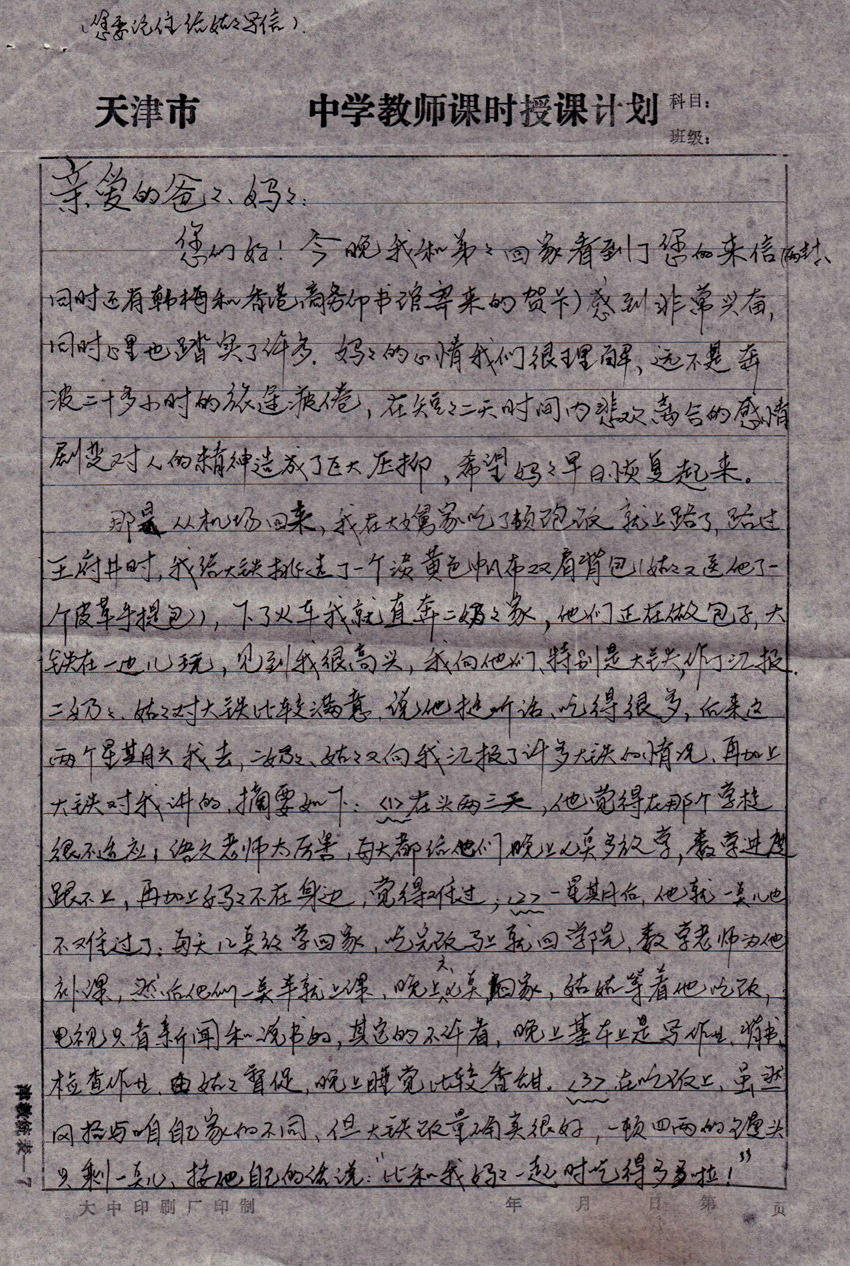 (您要记住给姑々写信)
天津市 中学教师课时授课计划 科目:
班级:
亲爱的爸々、妈々:
您们好!今晚我和弟々回家看到了您的来信(两封、
同时还有韩梅和香港商务印书馆寄来的贺卡)感到非常兴奋,
同时心里也踏实了许多.妈々的心情我们很理解、远不是奔
波二十多小时的旅途疲倦,在短々二天时间内悲欢离合的感情
剧变对人的精神造成了巨大压抑,希望妈々早日恢复起来。
那是从机场回来,我在大舅家吃了顿炮饭就上路了,路过
王府井时,我给大铁挑选了一个淡黄色帆布双肩背包(姑々又送他了一
个皮革手提包),下了火车我就直奔二奶々家,他们正在做包子,大
铁在一边儿玩,见到我很高兴,我向他们、特别是大铁,作了汇报.
二奶々、姑々对大铁比较满意,说他挺听话、吃得很多,后来这
两个星期六我去,二奶々、姑々又向我汇报了许多大铁的情况、再加上
大铁对我讲的,摘要如下:<1>在头两三天,他觉得在那个学校
很不适应;语文老师太厉害,每天都给他们晚上八点多放学,数学进度
跟不上,再加上妈々不在身边,觉得难过;<2>一星期后,他就一点儿也
不难过了:每天几点放学回家,吃完饭马上就回学院,数学老师为他
补课,然后他们一点半就上课,晚上八点回家,姑姑等着他吃饭,
电视只看新闻和说书的,其它的不许看,晚上基本上是写作业、背书、
检查作业、由姑々督促,晚上睡觉比较香甜。<3>在吃饭上,虽然
风格与咱自己家的不同、但大铁饭量确实很好,一顿四两的馒头
只剩一点儿、按他自己的话说:“比和我妈々一起时吃得多多啦!”
津教统表—7
大中印刷厂印制 年 月 日 第 页